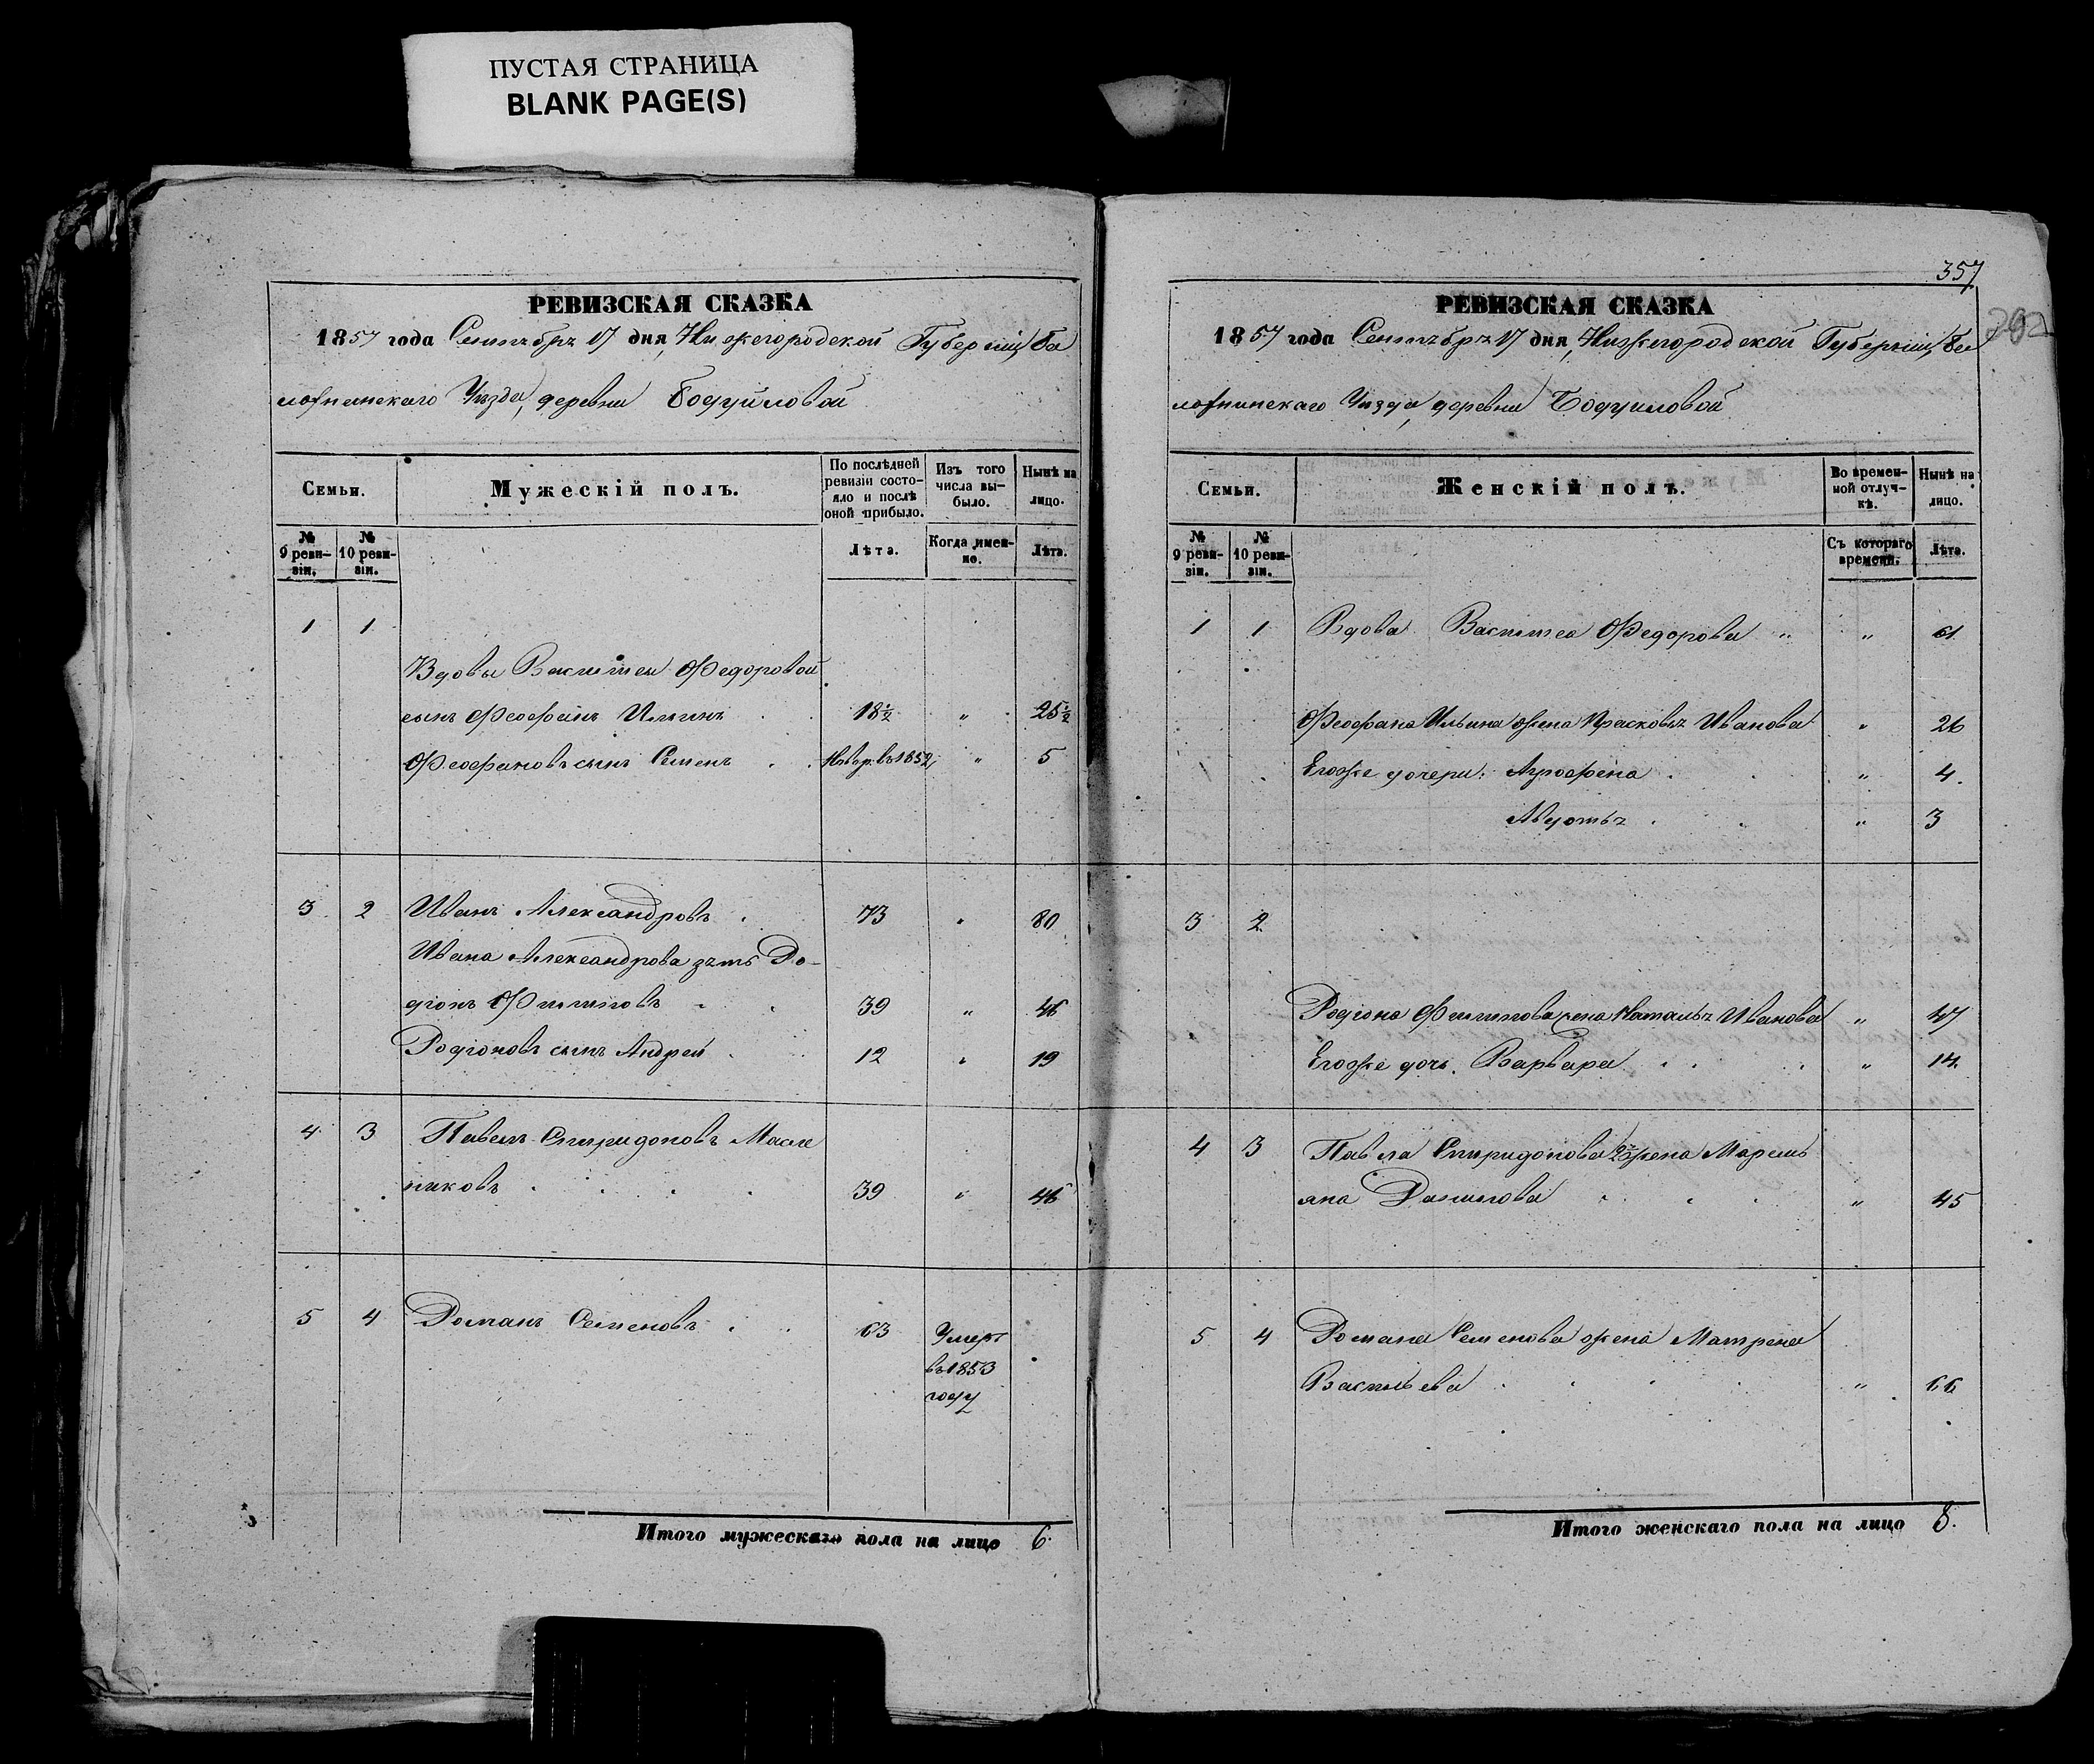 ПУСТАЯ СТРАНИЦА
BLANK PAGE(S)
РЕВИЗСКАЯ СКАЗКА
1857 года Сентября 17 дня, Нижегородской Губерніи, Ба
лахнинскаго Уѣзда, деревни
Семьи.
Мужескій полъ.
По послѣдней ревизіи состояло и послѣ оной прибыло.
Изъ того числа выбыло.
Нынѣ на лицо.
№ 9 ревизіи.
№ 10 ревизіи.
Лѣта.
Когда именно.
Лѣта.
1 1
Вдовы Василисы Федоровой
сынъ Феофанъ Ильинъ 18½ " 25½
Феофановъ сынъ Семенъ въ 1852 " 5
3 2 Иванъ Александровъ 73 " 80
Ивана Александрова зять Ро-
діонъ Филиповъ 39 " 46
Родіоновъ сынъ Андрей 12 " 19
4 3 Павелъ Спиридоновъ Масле
никовъ 39 " 46
5 4 Романъ Семеновъ 63 Умеръ
въ 1853
году
Итого мужескаго пола на лицо 6.
357
РЕВИЗСКАЯ СКАЗКА
1857 года Сентября 17 дня, Нижегородской Губерніи, Ба
лахнинскаго Уѣзда, деревни
Семьи.
Женскій полъ.
Во временной отлучкѣ.
Нынѣ на лицо.
№ 9 ревизіи.
№ 10 ревизіи.
Съ котораго времени.
Лѣта.
1 1 Вдова Василиса Федорова " " 61
Феофана Ильина жена Прасковья Иванова " 26
Егоже дочери: Агрофена " 4
Авдотья " 3
3 2
Родіона Филипова жена Наталья Иванова " 47
Егоже дочь Варвара " 14
4 3 Павла Спиридонова 2я жена Маремь
яна " 45
5 4 Романа Семенова жена Матрена
Васильева " 66
Итого женскаго пола на лицо 8.